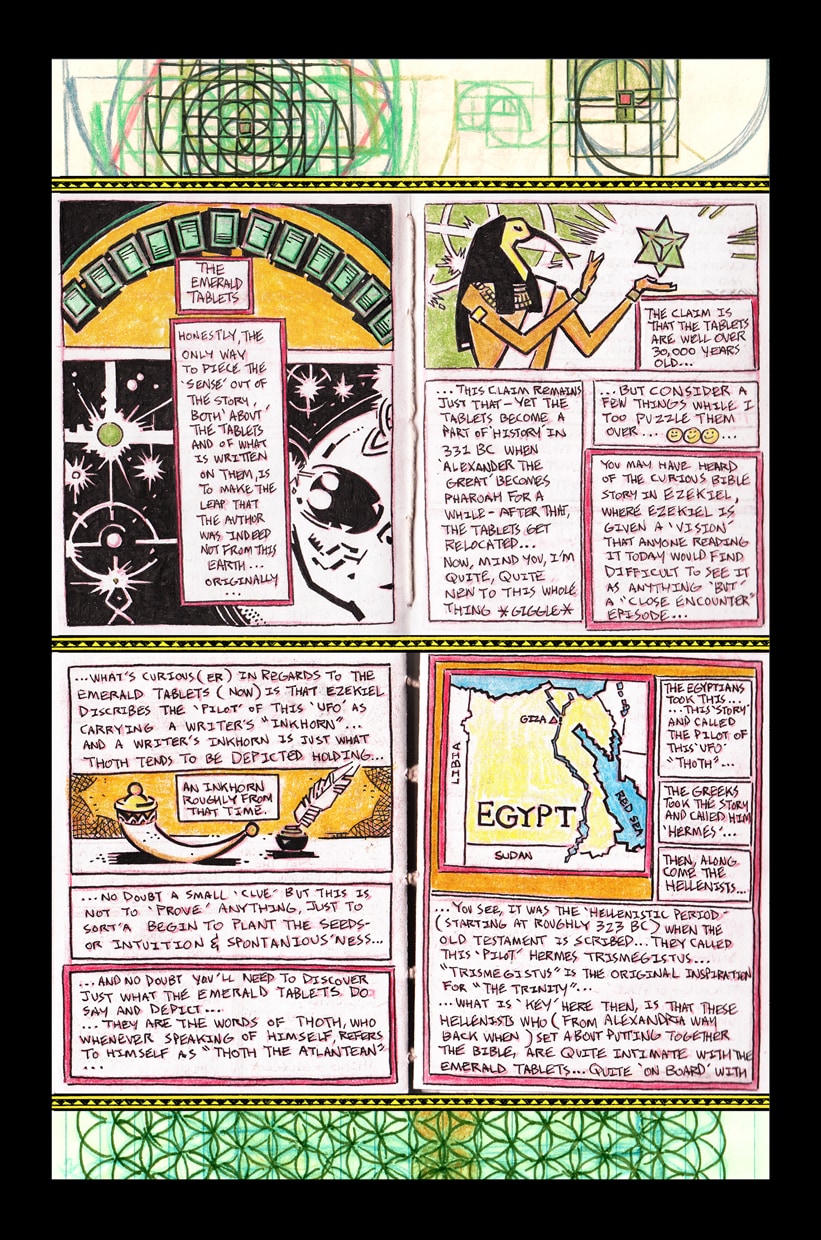 THE
EMERALD
TABLETS
HONESTLY, THE
ONLY WAY
TO PIECE THE
'SENSE' OUT OF
THE STORY,
BOTH 'ABOUT'
THE TABLETS
AND OF WHAT
IS WRITTEN
ON THEM, IS
TO MAKE THE
LEAP THAT
THE AUTHOR
WAS INDEED
NOT FROM THIS
EARTH...
ORIGINALLY
...
THE CLAIM IS
THAT THE TABLETS
ARE WELL OVER
30,000 YEARS
OLD...
...THIS CLAIM REMAINS
JUST THAT - YET THE
TABLETS BECOME A
PART OF 'HISTORY' IN
331 BC WHEN
'ALEXANDER THE
GREAT' BECOMES
PHAROAH FOR A
WHILE - AFTER THAT,
THE TABLETS GET
RELOCATED...
NOW, MIND YOU, I'M
QUITE, QUITE
NEW TO THIS WHOLE
THING *GIGGLE*
...BUT CONSIDER A
FEW THINGS WHILE I
TOO PUZZLE THEM
OVER.... 🙂🙂🙂...
YOU MAY HAVE HEARD
OF THE CURIOUS BIBLE
STORY IN EZEKIEL,
WHERE EZEKIEL IS
GIVEN A 'VISION'
THAT ANYONE READING
IT TODAY WOULD FIND
DIFFICULT TO SEE IT
AS ANYTHING 'BUT'
A "CLOSE ENCOUNTER"
EPISODE...
...WHAT'S CURIOUS(ER) IN REGARDS TO THE
EMERALD TABLETS (NOW) IS THAT EZEKIEL
DISCRIBES THE 'PILOT' OF THIS 'UFO' AS
CARRYING A WRITER'S "INKHORN"...
AND A WRITER'S INKHORN IS JUST WHAT
THOTH TENDS TO BE DEPICTED HOLDING...
AN INKHORN
ROUGHLY FROM
THAT TIME.
...NO DOUBT A SMALL 'CLUE' BUT THIS IS
NOT TO 'PROVE' ANYTHING, JUST TO
SORT'A BEGIN TO PLANT THE SEEDS-
OR INTUITION & SPONTANIOUS'NESS...
...AND NO DOUBT YOU'LL NEED TO DISCOVER
JUST WHAT THE EMERALD TABLETS DO
SAY AND DEPICT...
...THEY ARE THE WORDS OF THOTH, WHO
WHENEVER SPEAKING OF HIMSELF, REFERS
TO HIMSELF AS "THOTH THE ATLANTEAN"
...
GIZA
LIBIA
EGYPT
RED SEA
SUDAN
THE EGYPTIANS
TOOK THIS...
...THIS 'STORY'
AND CALLED
THE PILOT OF
THIS 'UFO'
"THOTH"...
THE GREEKS
TOOK THE STORY
AND CALLED HIM
'HERMES'...
THEN, ALONG
COME THE
HELLENISTS...
...YOU SEE, IT WAS THE 'HELLENISTIC PERIOD'
(STARTING AT ROUGHLY 323 BC) WHEN THE
OLD TESTAMENT IS SCRIBED... THEY CALLED
THIS 'PILOT' HERMES TRISMEGISTUS...
"TRISMEGISTUS" IS THE ORIGINAL INSPIRATION
FOR "THE TRINITY"...
...WHAT IS 'KEY' HERE THEN, IS THAT THESE
HELLENISTS WHO (FROM ALEXANDRIA WAY
BACK WHEN) SET ABOUT PUTTING TOGETHER
THE BIBLE, ARE QUITE INTIMATE WITH THE
EMERALD TABLETS... QUITE 'ON BOARD' WITH